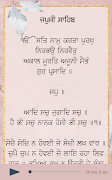 ਜਪੁਜੀ ਸਾਹਿਬ
ੴ ਸਤਿ ਨਾਮੁ ਕਰਤਾ ਪੁਰਖੁ
ਨਿਰਭਉ ਨਿਰਵੈਰੁ
ਅਕਾਲ ਮੂਰਤਿ ਅਜੂਨੀ ਸੈਭੰ
ਗੁਰ ਪ੍ਰਸਾਦਿ ॥
ਜਪੁ ॥
ਆਦਿ ਸਚੁ ਜੁਗਾਦਿ ਸਚੁ ॥
ਹੈ ਭੀ ਸਚੁ ਨਾਨਕ ਹੋਸੀ ਭੀ ਸਚੁ ॥੧॥
ਸੋਚੈ ਸੋਚਿ ਨ ਹੋਵਈ ਜੇ ਸੋਚੀ ਲਖ ਵਾਰ ॥
ਚੁਪੈ ਚੁਪ ਨ ਹੋਵਈ ਜੇ ਲਾਇ ਰਹਾ ਲਿਵ